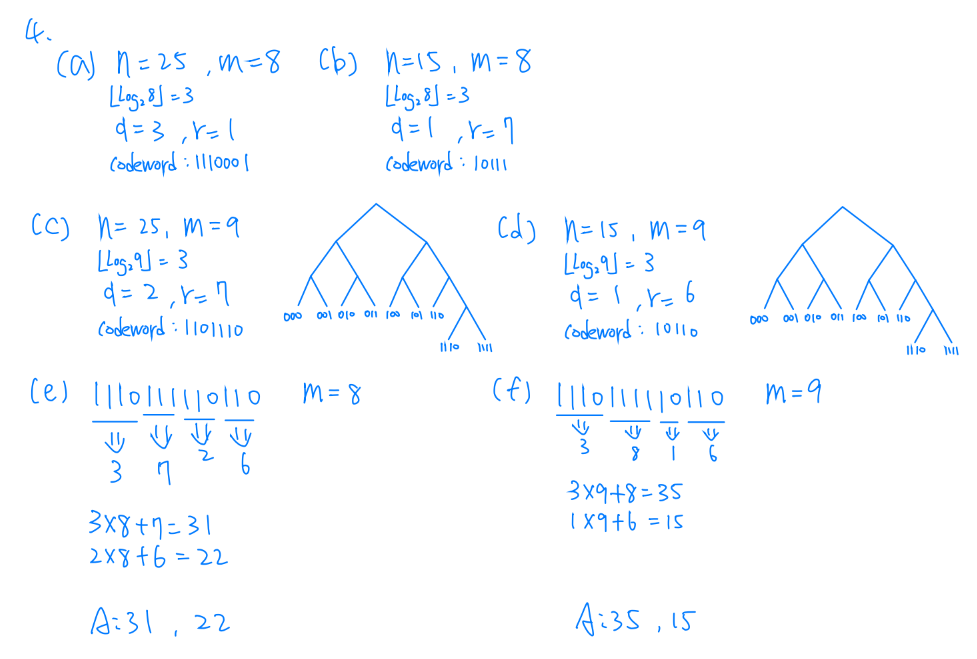 4.
(a) n=25, m=8
⌊Log₂8⌋=3
q=3, r=1
Codeword: 1110001
(b) n=15, m=8
⌊Log₂8⌋=3
q=1, r=7
Codeword: 10111
(c) n=25, m=9
⌊Log₂9⌋=3
q=2, r=7
Codeword: 1101110
000 001 010 011 100 101 110
1110 1111
(d) n=15, m=9
⌊Log₂9⌋=3
q=1, r=6
Codeword: 10110
000 001 010 011 100 101 110
1110 1111
(e) 1110111110110 m=8
⇓ ⇓ ⇓ ⇓
3 7 2 6
3x8+7=31
2x8+6=22
A:31, 22
(f) 1110111110110 m=9
⇓ ⇓ ⇓ ⇓
3 8 1 6
3x9+8=35
1x9+6=15
A:35, 15